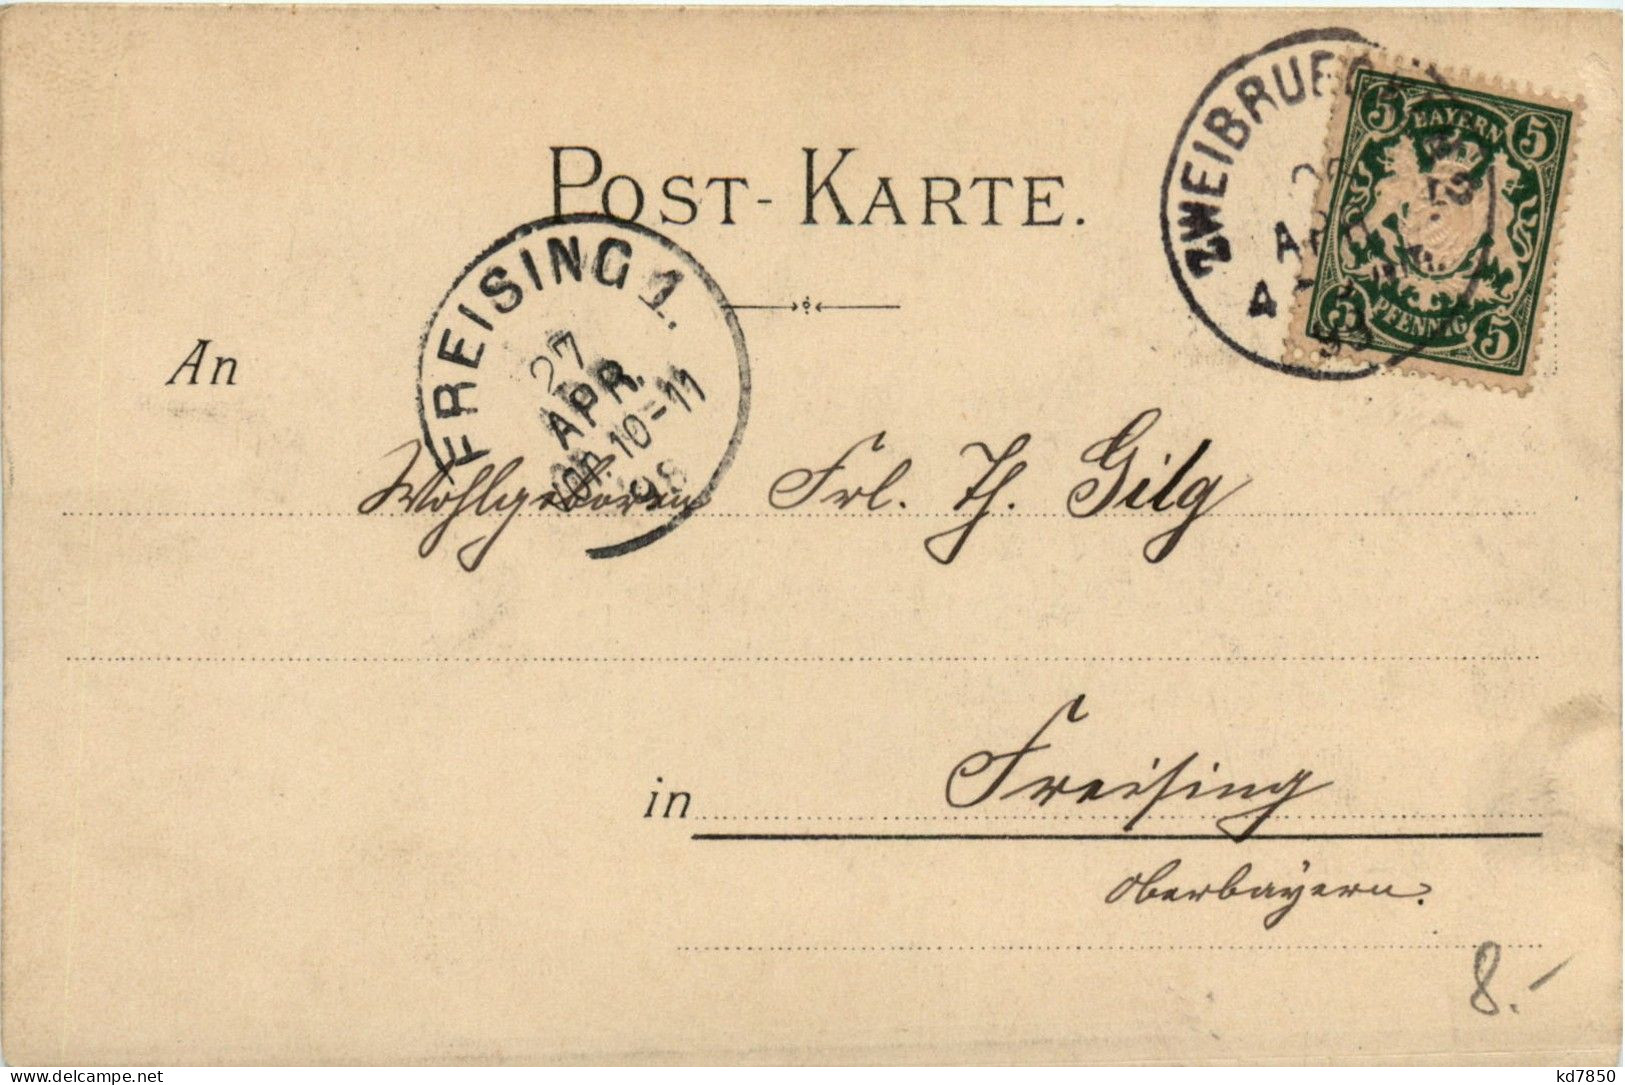 POST-KARTE.
ZWEIBRUECKEN
A
98
5 BAYERN 5
5 PFENNIG 5
FREISING 1.
27
APR.
Vor. 10-11
98
An
Wohlgeboren Frl. Th. Gilg
in Freising
Oberbayern.
8.-
kd7850